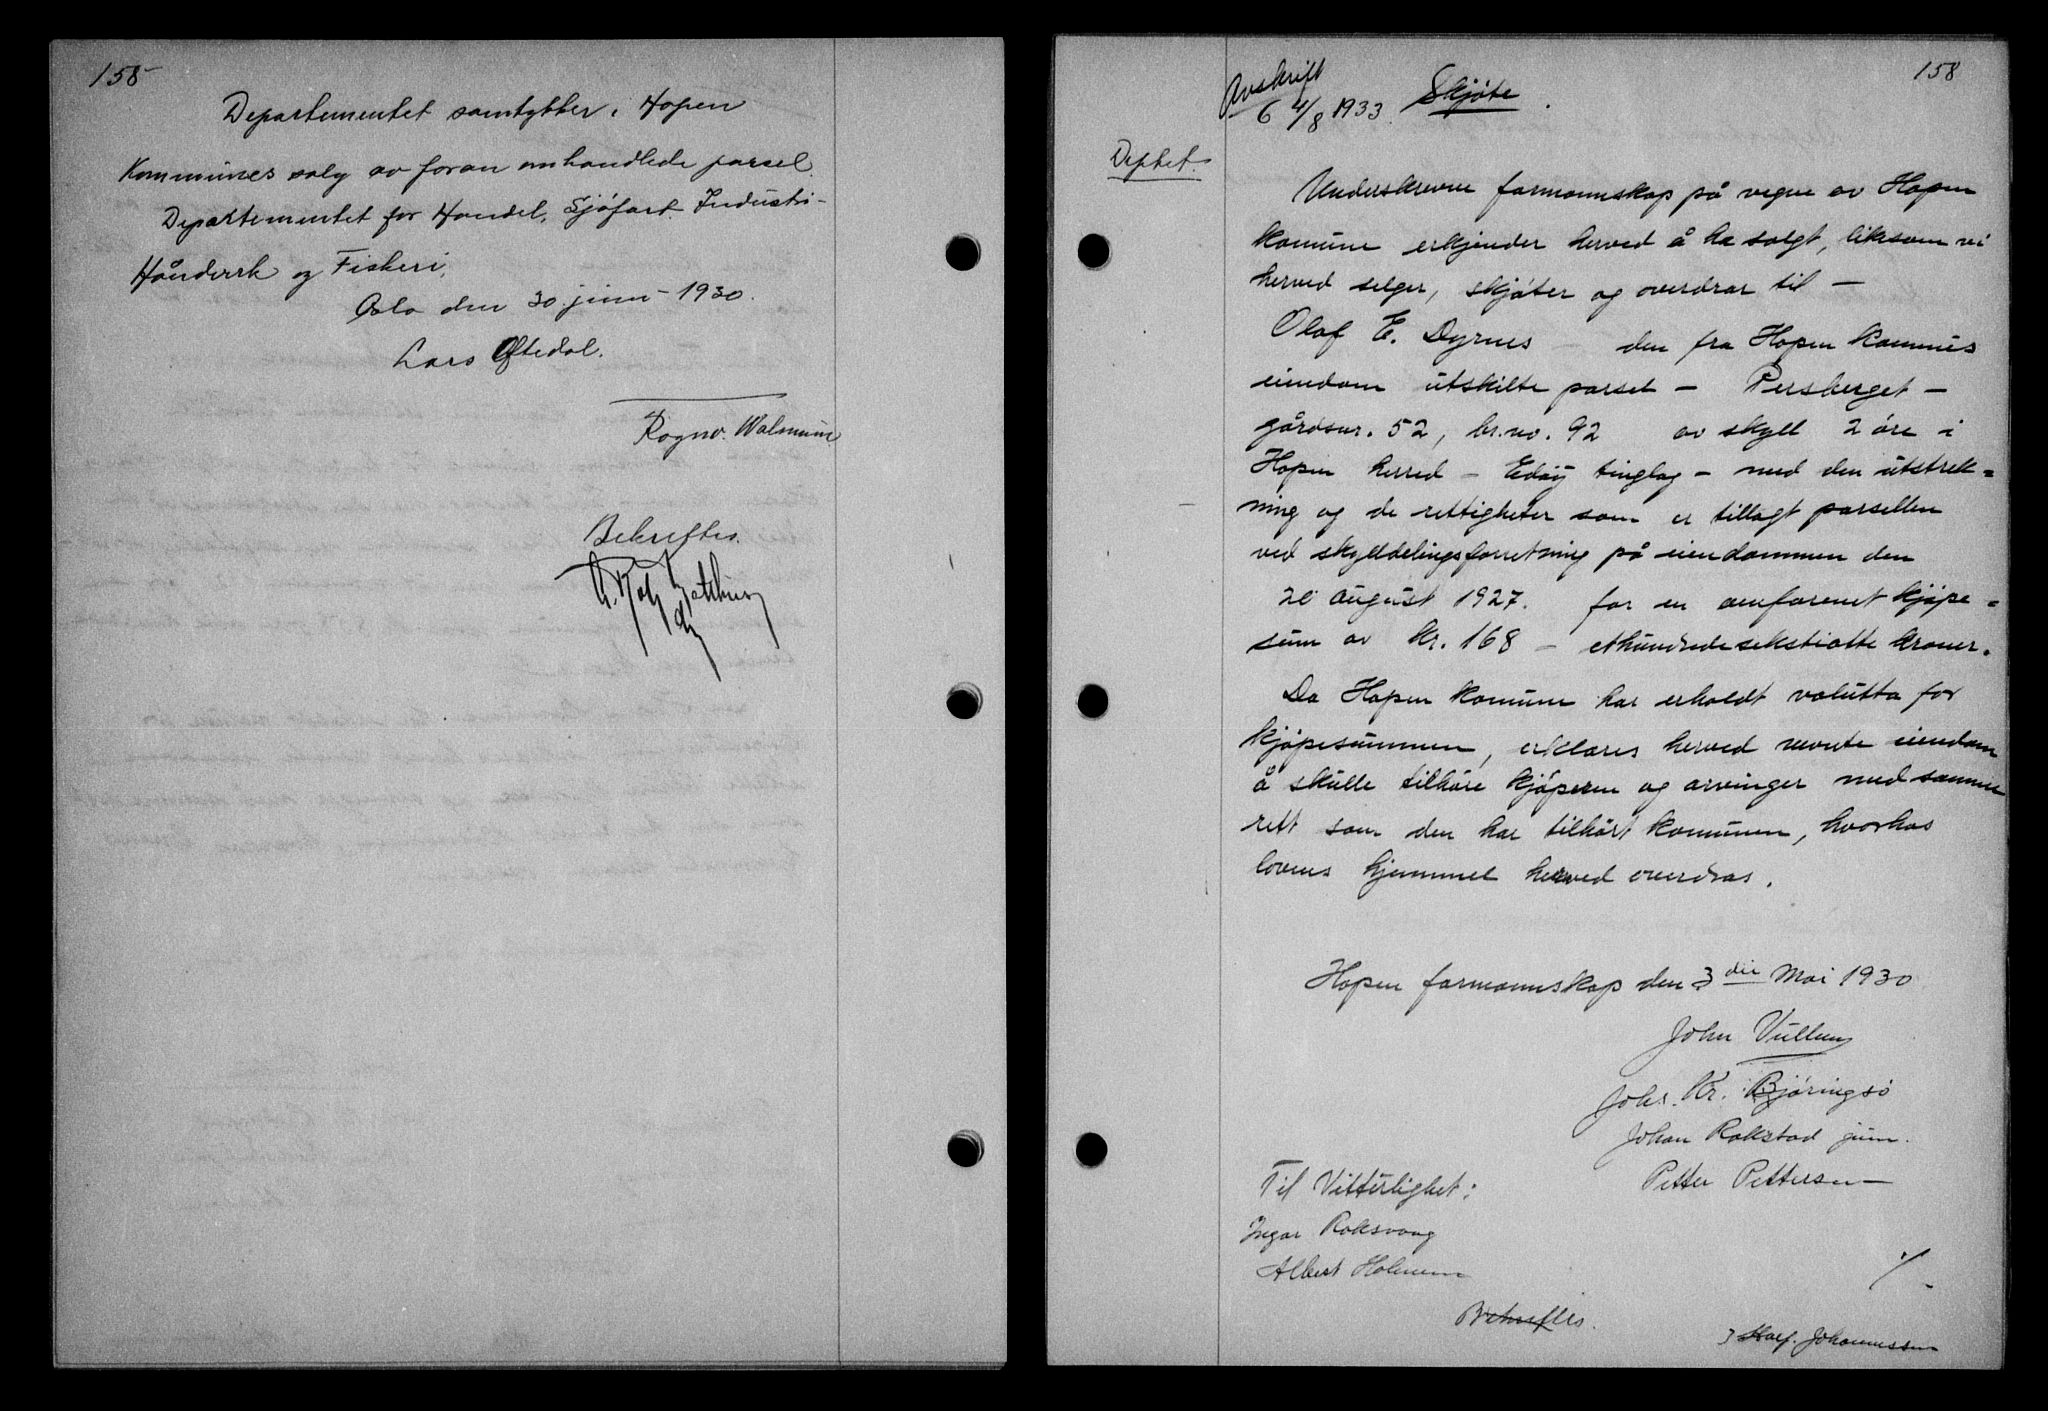 158
Departementet samtykker i Hopen
Kommunes salg av foran omhandlede parsel.
Departementet for Handel, Sjöfart. Industri-
Håndverk og Fiskeri,
Oslo den 30. juni - 1930.
Lars Oftedal.
Rognv.
Bekreftes.
158
Avskrift
6 4/8 1933. Skjøte.
Dephet.
Underskrevne formannskap på vegne av Hopen
komune erkjender herved å ha solgt, liksom vi
herved selger, skjøter og overdrar til -
Olaf E. Dyrnes - den fra Hopen kommunes
eiendom utskilte parsel - Persberget -
gårdsnr. 52, br.no. 92 av skyll 2 øre i
Hopen herred - Edøy tinglag - med den utstrek=
ning og de rettigheter som er tillagt parsellen
ved skylddelingsforretning på eiendommen den
20 august 1927. for en omforenet kjøpe=
sum av kr. 168 - ethundredesekstiotte kroner.
Da Hopen komune har erholdt valutta for
kjøpesummen, erklæres herved nevnte eiendom
å skulle tilhøre kjøperen og arvinger med samme
rett som den har tilhört komunen, hvorhos
lovens hjemmel herved overdras.
Hopen formannskap den 3die Mai 1930
John Vullum
Johs. Kr. Bjøringsö
Johan Rokstad jun.
Til Vitterlighet: Petter Pettersen
Ingar Roksvaag
Albert Holmen
./.
Bekreftes.
Johannessen